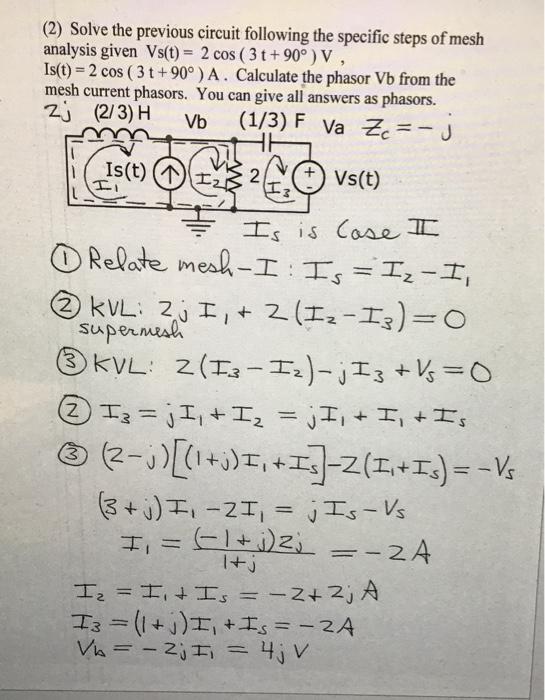 (2) Solve the previous circuit following the specific steps of mesh
analysis given Vs(t) = 2 cos ( 3 t + 90° ) V ,
Is(t) = 2 cos ( 3 t + 90° ) A . Calculate the phasor Vb from the
mesh current phasors. You can give all answers as phasors.
2j (2/3) H Vb (1/3) F Va Zc = -j
Is(t) I₁ I₂ 2 I₃ + Vs(t)
Is is Case II
① Relate mesh-I : Is = I₂ - I₁
② KVL: 2j I₁ + 2(I₂ - I₃) = 0
supermesh
③ KVL: 2(I₃ - I₂) - jI₃ + Vs = 0
② I₃ = jI₁ + I₂ = jI₁ + I₁ + Is
③ (2-j)[(1+j)I₁ + Is] - 2(I₁ + Is) = -Vs
(3+j)I₁ - 2I₁ = jIs - Vs
I₁ = (-1+j)2j / 1+j = -2 A
I₂ = I₁ + Is = -2 + 2j A
I₃ = (1+j)I₁ + Is = -2A
Vb = -2jI₁ = 4j V